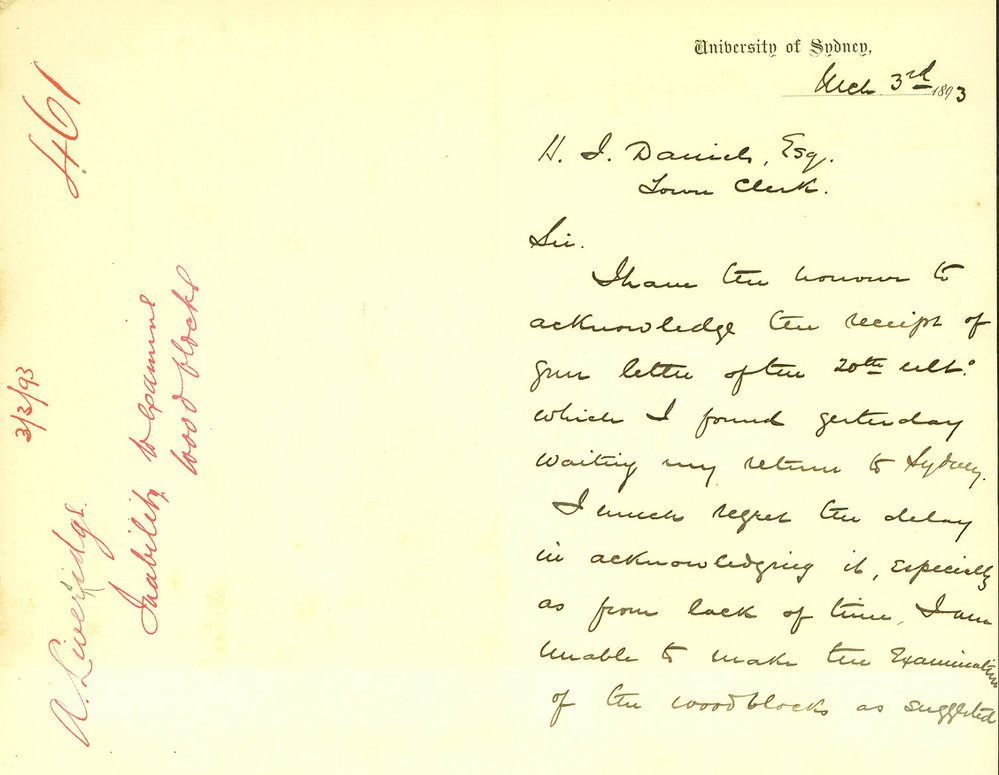 University of Sydney,
Mch 3rd 1893
H. J. Daniels, Esq.
Town Clerk.
Sir.
I have the honour to
acknowledge the receipt of
your letter of the 20th ult:
which I found yesterday
waiting my return to Sydney.
I much regret the delay
in acknowledging it, especially
as from lack of time, I am
unable to make the Examination
of the woodblocks as suggested
461
3/3/93
A. Liversidge.
Inability to examine
wood blocks